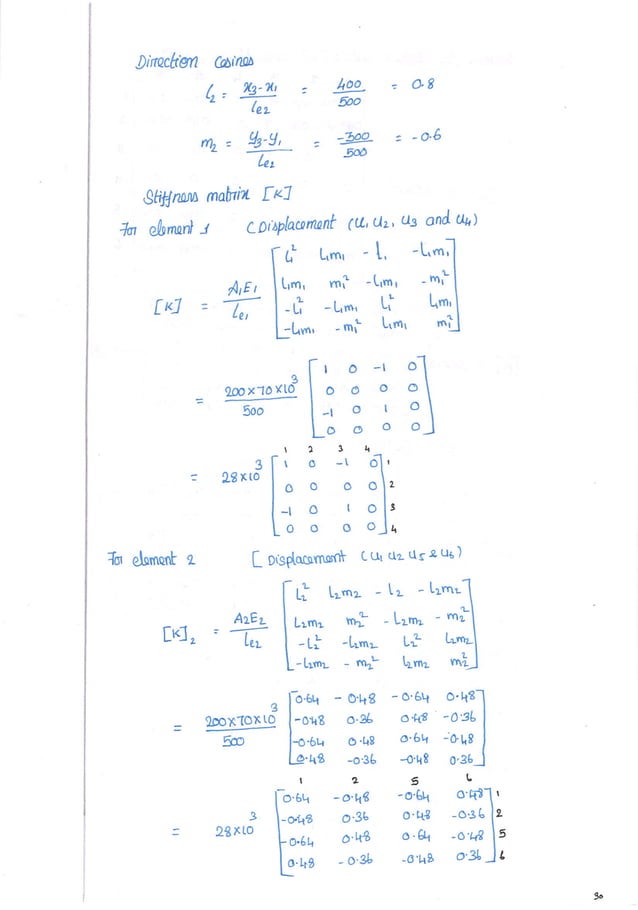 Direction Cosines
l₂ = x₃-x₁ / le₂ = 400 / 500 = 0.8
m₂ = y₃-y₁ / le₂ = -300 / 500 = -0.6
Stiffness matrix [K]
For element 1 (Displacement (u₁ u₂, u₃ and u₄)
[K] = A₁E₁ / le₁ [ l₁² l₁m₁ -l₁ -l₁m₁
l₁m₁ m₁² -l₁m₁ -m₁²
-l₁² -l₁m₁ l₁² l₁m₁
-l₁m₁ -m₁² l₁m₁ m₁² ]
= 200×70×10³ / 500 [ 1 0 -1 0
0 0 0 0
-1 0 1 0
0 0 0 0 ]
1 2 3 4
= 28×10³ [ 1 0 -1 0 ] 1
0 0 0 0 2
-1 0 1 0 3
0 0 0 0 4
For element 2 [Displacement (u₁ u₂ u₅ & u₆)
[K]₂ = A₂E₂ / le₂ [ l₂² l₂m₂ -l₂ -l₂m₂
l₂m₂ m₂² -l₂m₂ -m₂²
-l₂² -l₂m₂ l₂² l₂m₂
-l₂m₂ -m₂² l₂m₂ m₂² ]
= 200×70×10³ / 500 [ 0.64 -0.48 -0.64 0.48
-0.48 0.36 0.48 -0.36
-0.64 0.48 0.64 -0.48
0.48 -0.36 -0.48 0.36 ]
1 2 5 6
= 28×10³ [ 0.64 -0.48 -0.64 0.48 ] 1
-0.48 0.36 0.48 -0.36 2
-0.64 0.48 0.64 -0.48 5
0.48 -0.36 -0.48 0.36 6
30